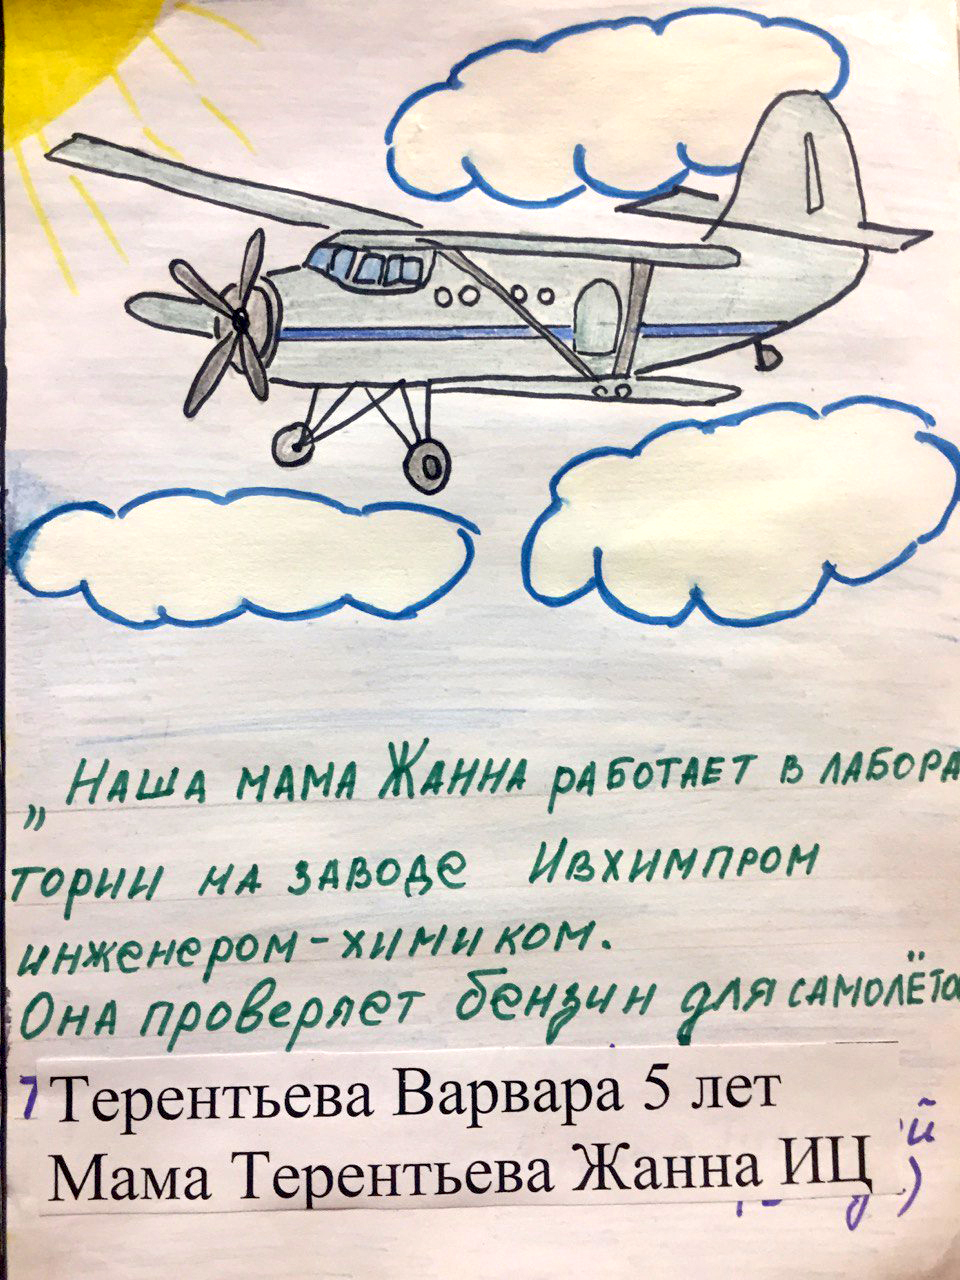 „Наша мама Жанна работает в лабора
тории на заводе Ивхимпром
инженером-химиком.
Она проверяет бензин для самолёто
7 Терентьева Варвара 5 лет
Мама Терентьева Жанна ИЦ
й
)